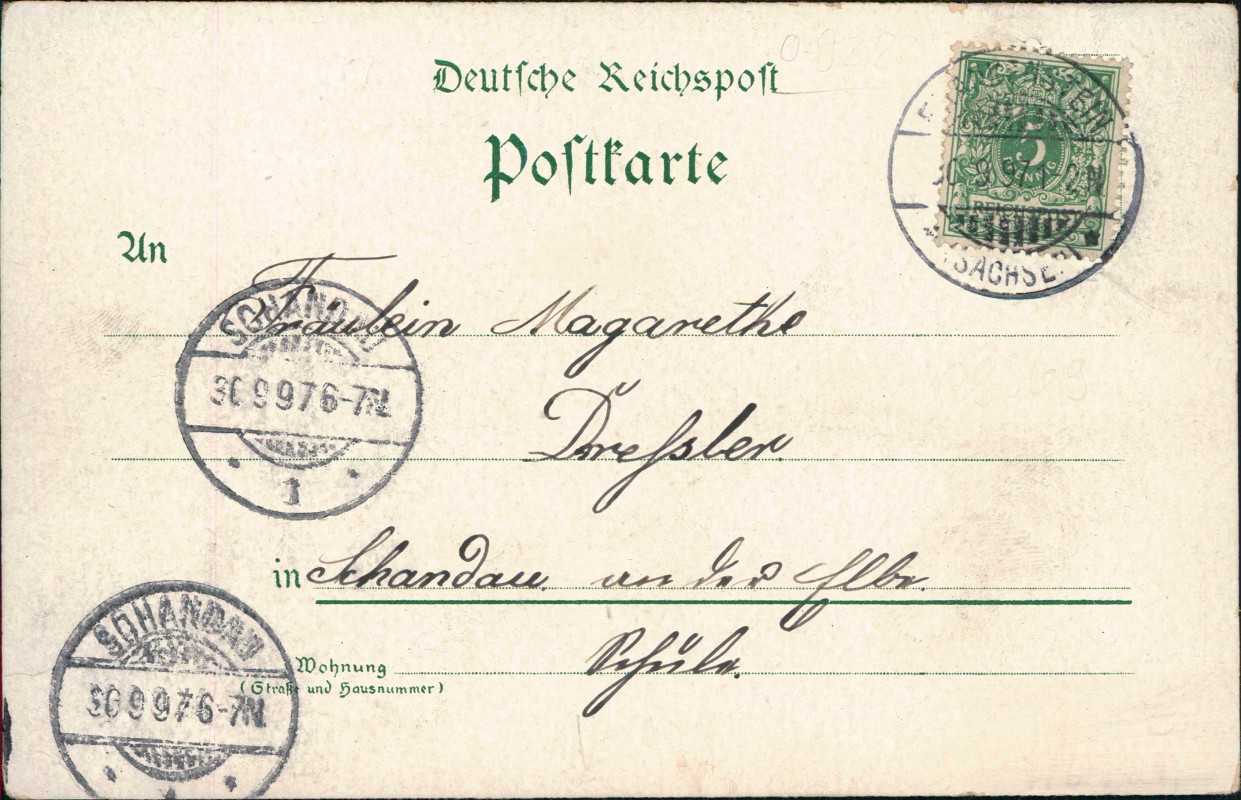 Deutsche Reichspost
Postkarte
5
SACHSEN
An
Fräulein Magarethe
Dressler
SCHANDAU
30 9 97 6-7N.
1
in Schandau an der Elbe
Schule.
Wohnung
(Straße und Hausnummer)
SCHANDAU
30 9 97 6-7N.